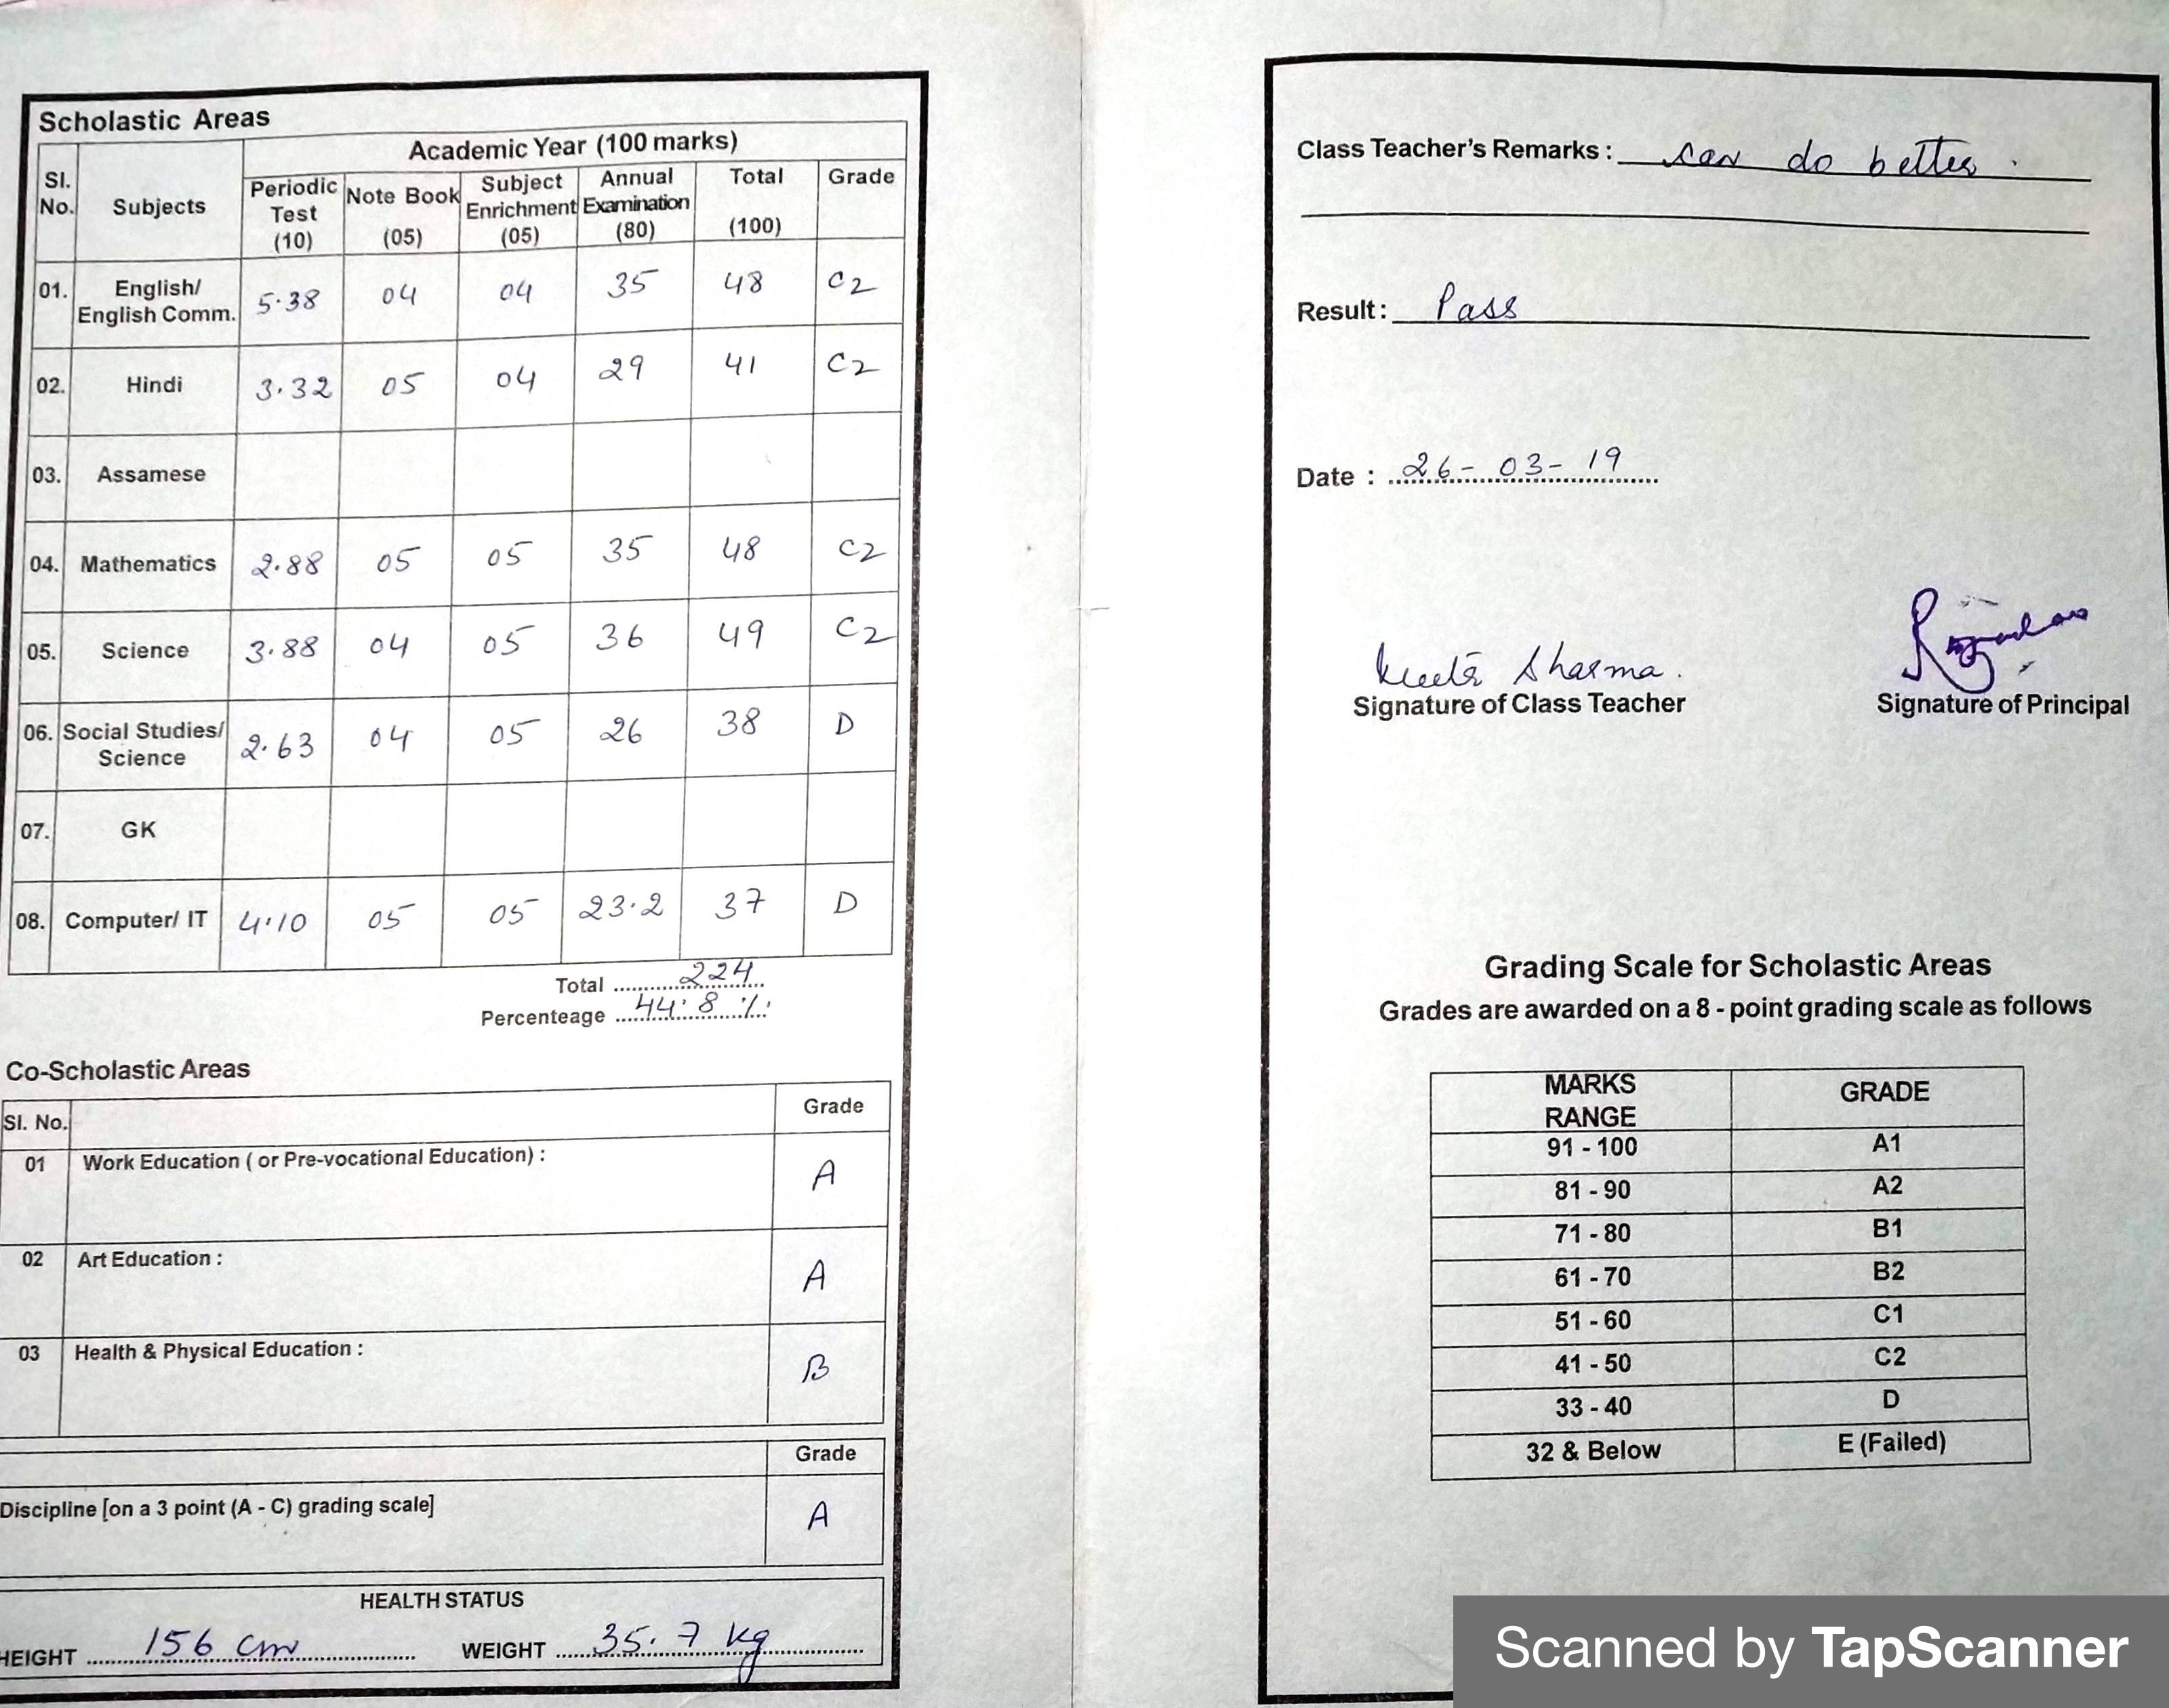 Scholastic Areas
Sl. No. Subjects Academic Year (100 marks)
Periodic Test (10) Note Book (05) Subject Enrichment (05) Annual Examination (80) Total (100) Grade
01. English/ English Comm. 5.38 04 04 35 48 C2
02. Hindi 3.32 05 04 29 41 C2
03. Assamese
04. Mathematics 2.88 05 05 35 48 C2
05. Science 3.88 04 05 36 49 C2
06. Social Studies/ Science 2.63 04 05 26 38 D
07. GK
08. Computer/ IT 4.10 05 05 23.2 37 D
Total 224
Percenteage 44.8 %
Co-Scholastic Areas
Sl. No. Grade
01 Work Education ( or Pre-vocational Education) : A
02 Art Education : A
03 Health & Physical Education : B
Grade
Discipline [on a 3 point (A - C) grading scale] A
HEALTH STATUS
HEIGHT 156 cm WEIGHT 35.7 kg
Class Teacher's Remarks : can do better.
Result : Pass
Date : 26-03-19
Sharma.
Signature of Class Teacher Signature of Principal
Grading Scale for Scholastic Areas
Grades are awarded on a 8 - point grading scale as follows
MARKS RANGE GRADE
91 - 100 A1
81 - 90 A2
71 - 80 B1
61 - 70 B2
51 - 60 C1
41 - 50 C2
33 - 40 D
32 & Below E (Failed)
Scanned by TapScanner